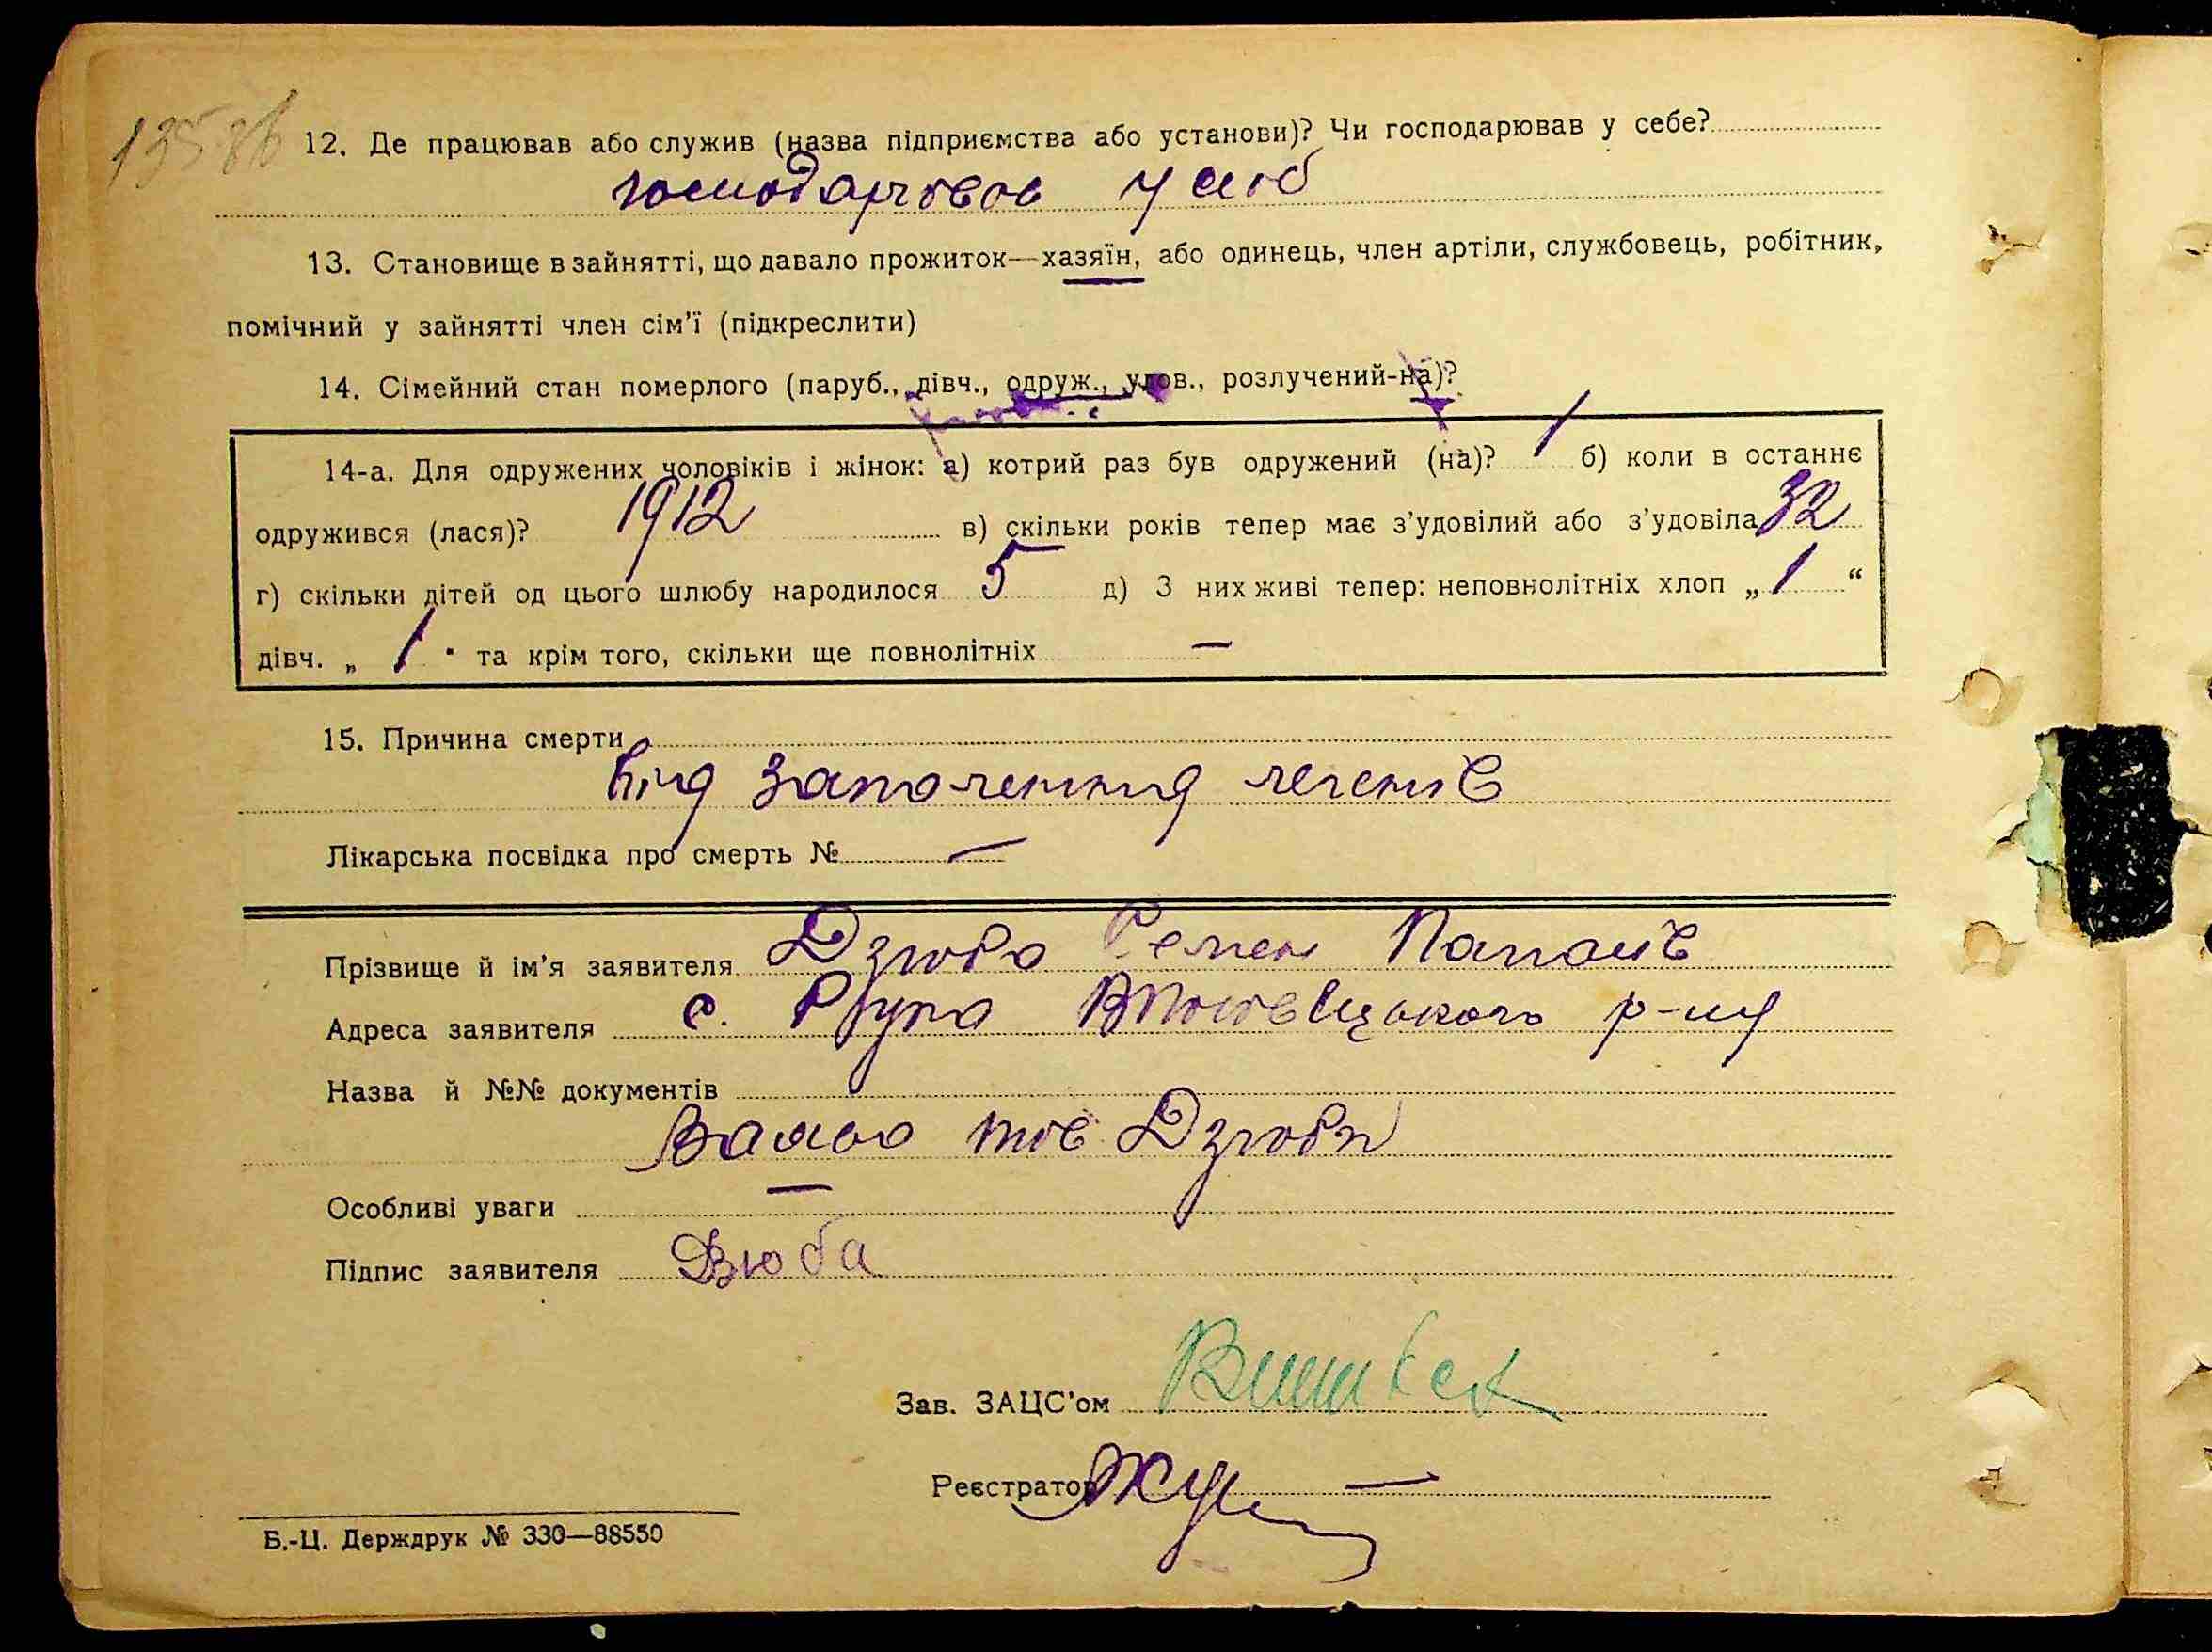 135зв
12. Де працював або служив (назва підприємства або установи)? Чи господарював у себе?
господарював у себ
13. Становище в зайнятті, що давало прожиток—хазяїн, або одинець, член артіли, службовець, робітник,
помічний у зайнятті член сім’ї (підкреслити)
14. Сімейний стан померлого (паруб., дівч., одруж., удов., розлучений-на)?
14-а. Для одружених чоловіків і жінок: а) котрий раз був одружений (на)? 1 б) коли в останнє
одружився (лася)? 1912 в) скільки років тепер має з’удовілий або з’удовіла 32
г) скільки дітей од цього шлюбу народилося 5 д) З них живі тепер: неповнолітніх хлоп „ 1 “
дівч. „ 1 “ та крім того, скільки ще повнолітніх —
15. Причина смерти
Від запаления легенів
Лікарська посвідка про смерть № —
Прізвище й ім’я заявителя Дзюба Семен
Адреса заявителя с. р-ну
Назва й №№ документів
Заява тов Дзюби
Особливі уваги —
Підпис заявителя Дзюба
Зав. ЗАЦС’ом
Реєстратор
Б.-Ц. Держдрук № 330—88550